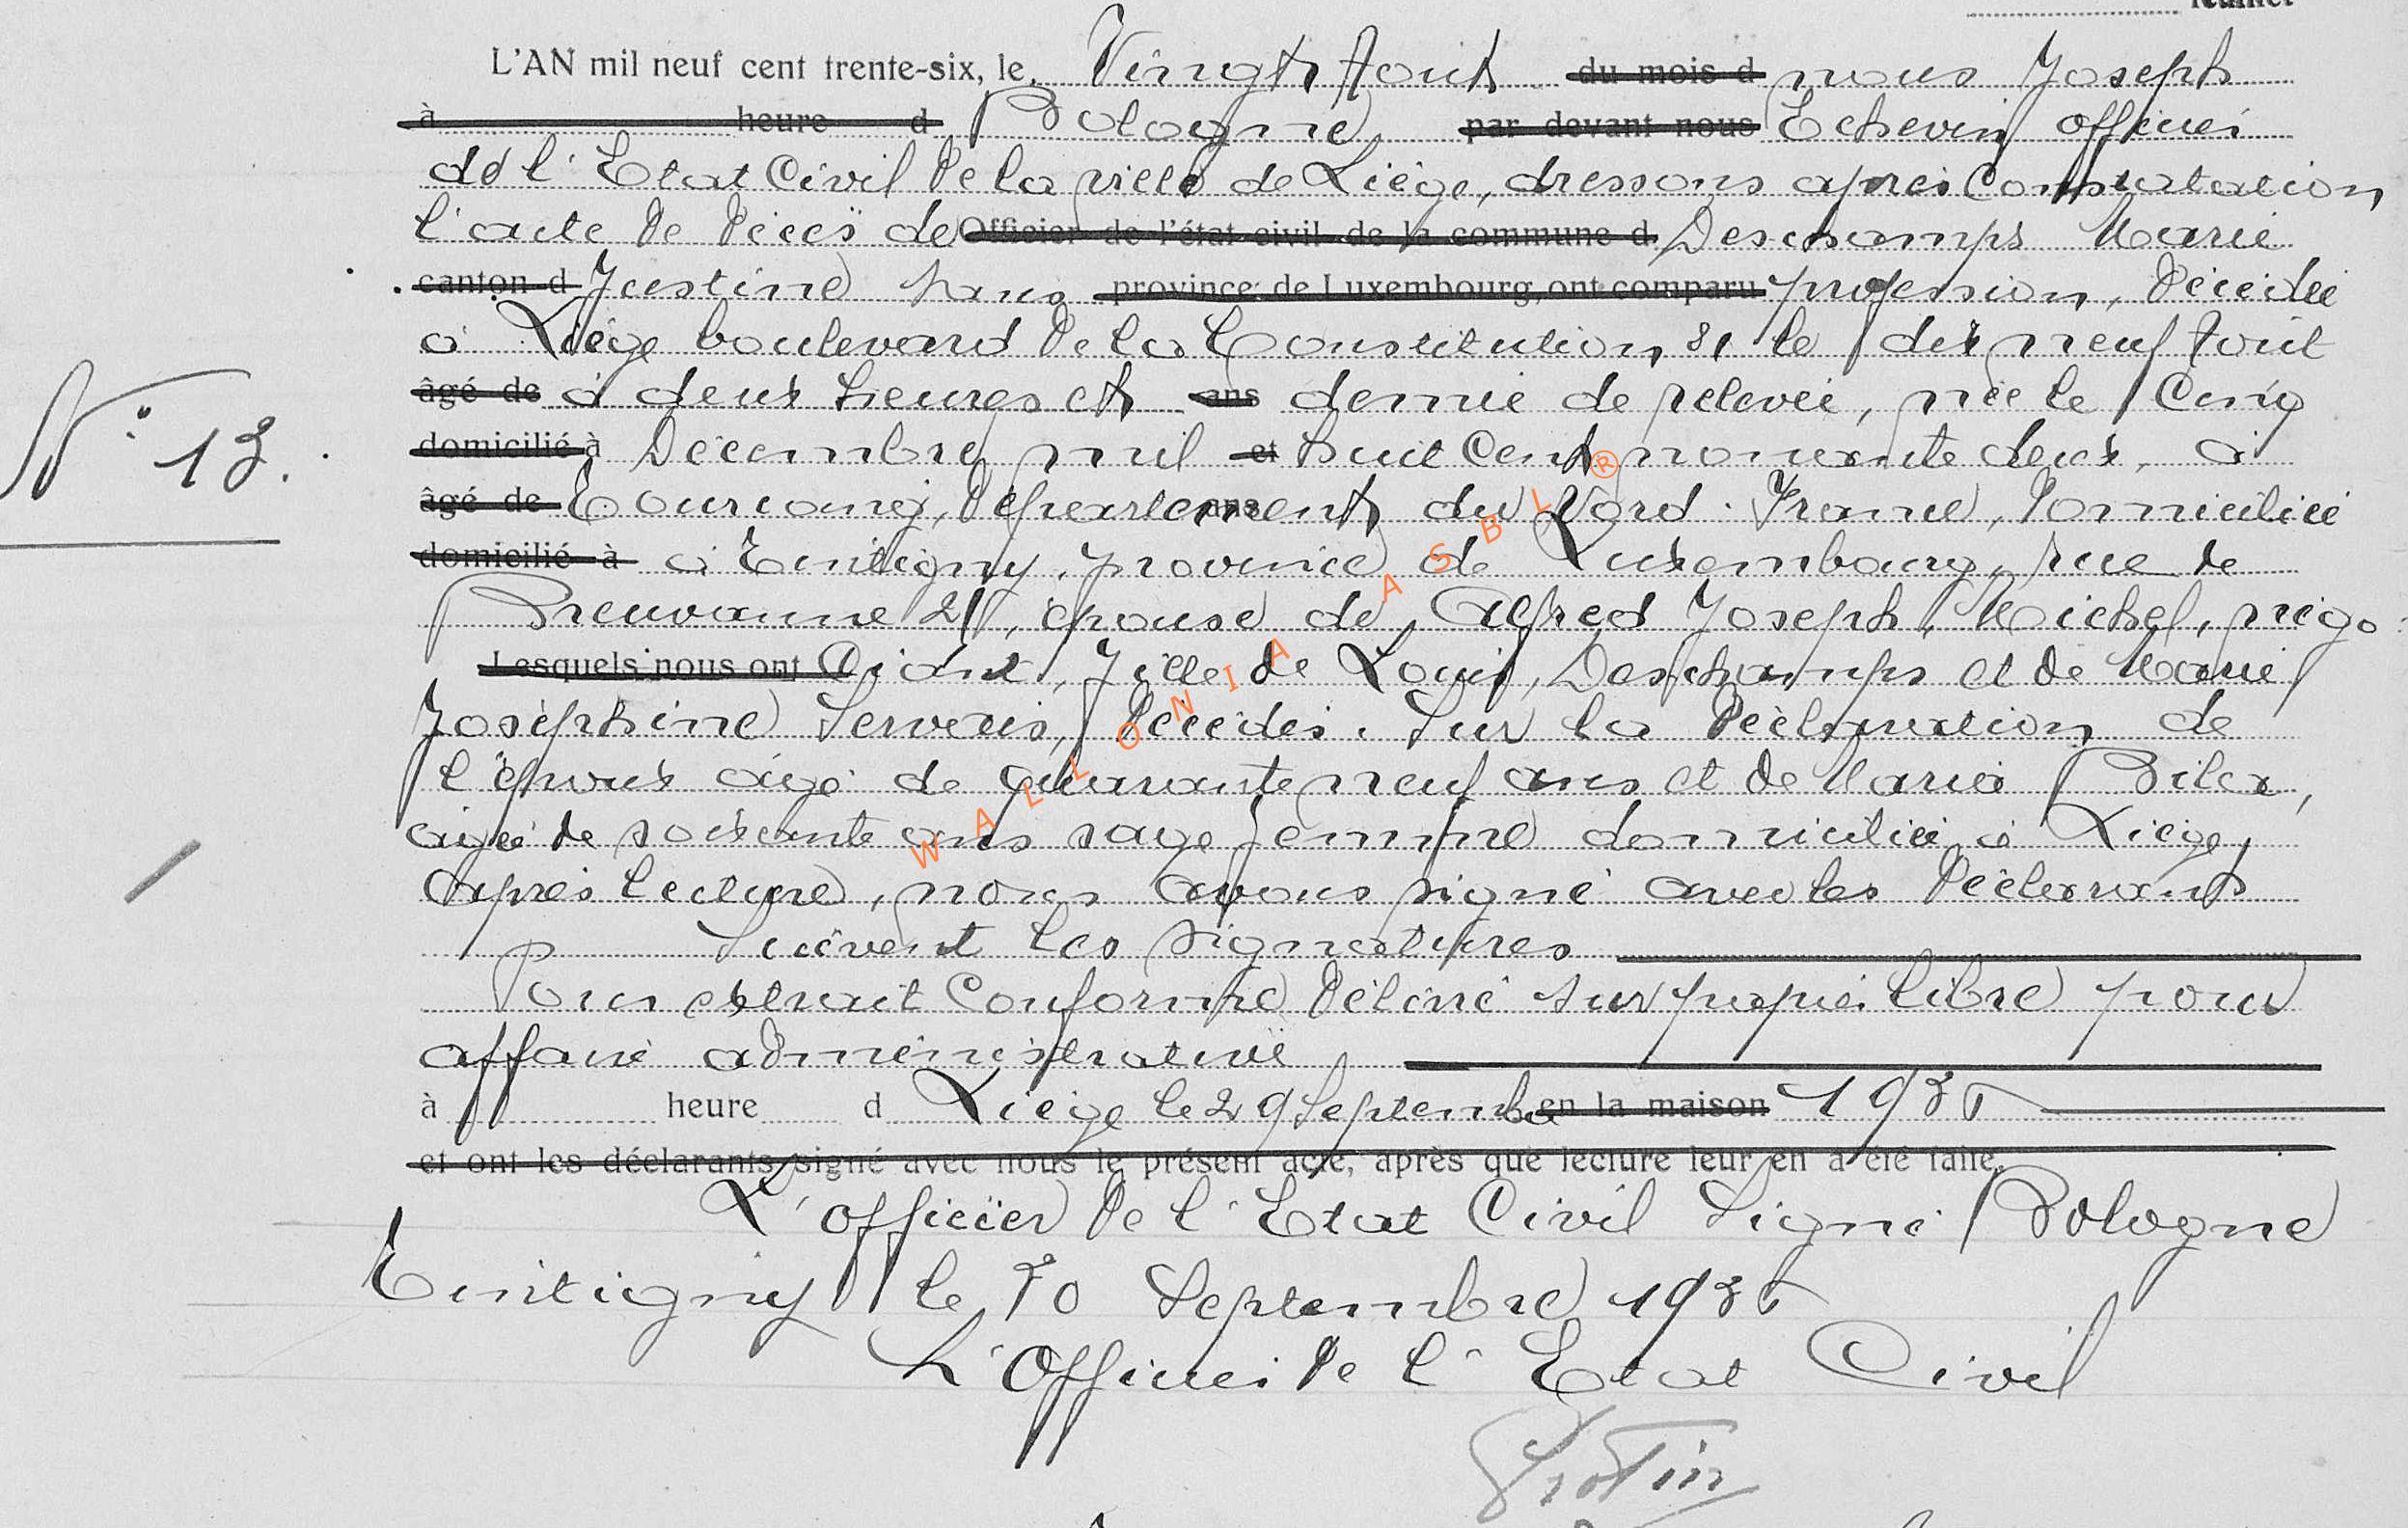 feuillet
L'AN mil neuf cent trente-six, le Vingt Aout du mois d nous Joseph
à heure d Bologne par devant nous Echevin officier
de l'Etat Civil de la ville de Liège, dressons après Constatation
l'acte de décès de Officier de l'état civil de la commune d Deschamps Marie
canton d Justine sans province de Luxembourg, ont comparu profession, décédée
à Liège boulevard de la Constitution 81 le dix neuf Aout
âgé de à deux heures et ans demie de relevée, née le Cinq
domicilié à Décembre mil et huit Cent nonante deux, à
âgé de Tourcoing, Département ans du Nord. France, domiciliée
domicilié à à Tintigny, province de Luxembourg, rue de
Breuvanne 21, épouse de Alfred Joseph Michel, négo
Lesquels nous ont Ciant, fille de Louis Deschamps et de Marie
Joséphine Servais, décédés. Sur la déclaration de
l'époux âgé de quarante neuf ans et de Maria
âgée de soixante ans sage femme domiciliée à Liège,
après lecture, nous avons signé avec les déclarants
Suivent les signatures
Pour extrait Conforme délivré sur papier libre pour
affaire administrative
à heure d Liège le 29 Septembre en la maison 1936
et ont les déclarants signé avec nous le présent acte, après que lecture leur en a été faite.
L'officier de l'Etat Civil Signé Bologne
N° 13.
Tintigny le 30 Septembre 1936
L'Officier de l'Etat Civil
WALLONIA ASBL ®